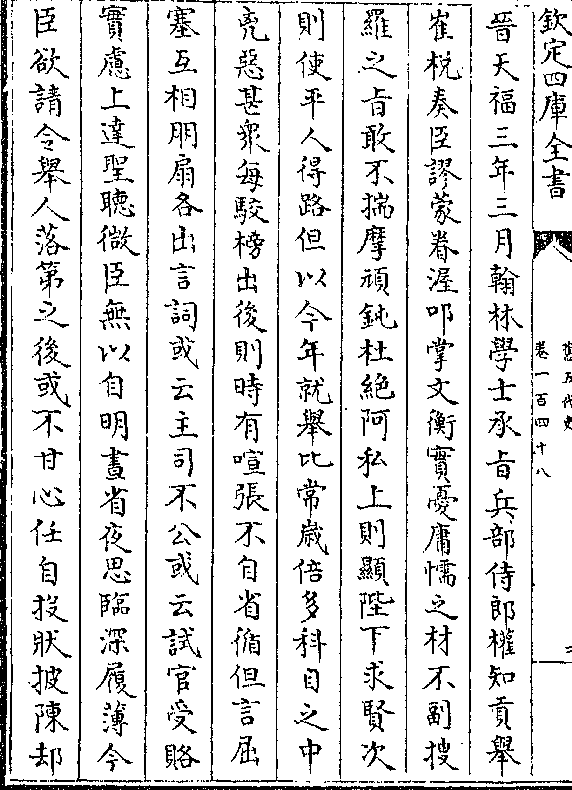 欽定四庫全書
舊五代史
卷一百四十八
晉天福三年三月翰林學士承㫖兵部侍郎權知貢舉
崔梲奏臣謬蒙眷渥叩掌文衡實憂庸懦之材不副搜
羅之㫖敢不揣摩頑鈍杜絶阿私上則顯陛下求賢次
則使平人得路但以今年就舉比常嵗倍多科目之中
兇惡甚衆每駮榜出後則時有喧張不自省循但言屈
塞互相朋扇各出言詞或云主司不公或云試官受賂
實慮上達聖聽微臣無以自明晝省夜思臨深履薄今
臣欲請令舉人落第之後或不甘心任自投狀披陳却